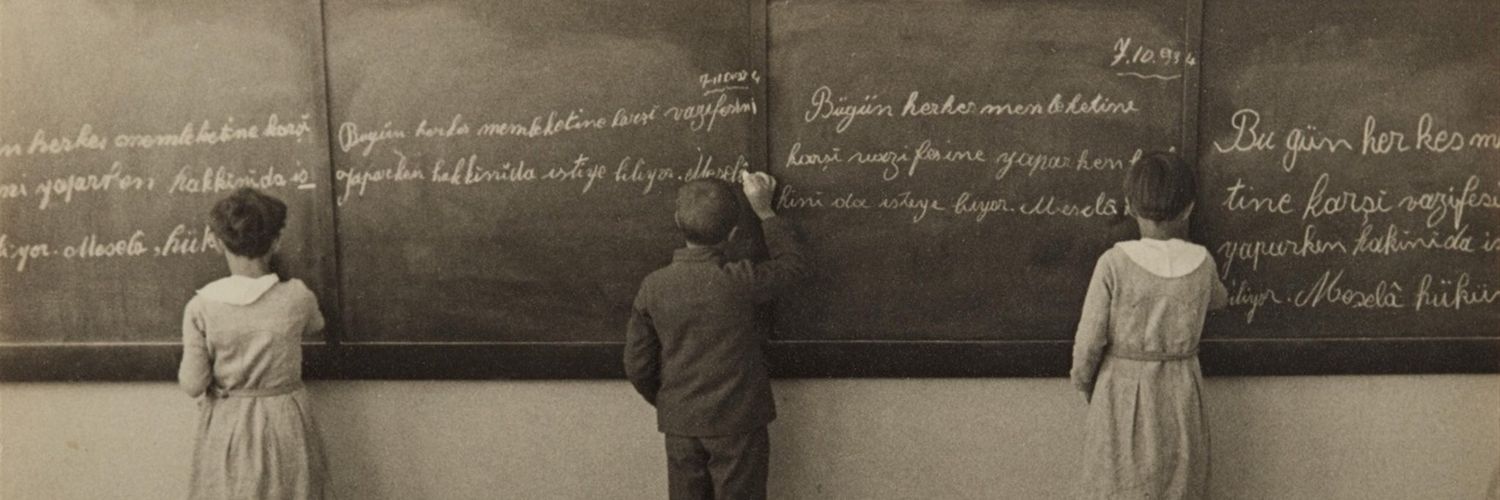 n herkes memleketine karşi
ni yaparken hakkinida is
liyor. Meselâ, hük
7.10.934
Bugün herkes memleketine karşi vazifesini
yaparken hakkinida istiye biliyor. Meselâ
7.10.934
Bügün herkes memleketine
karşi vazifesine yaparken
kini da isteye biyor. Meselâ
Bu gün her kes m
tine karşi vazifesi
yaparken hakinida is
iliyor. Meselâ hükü